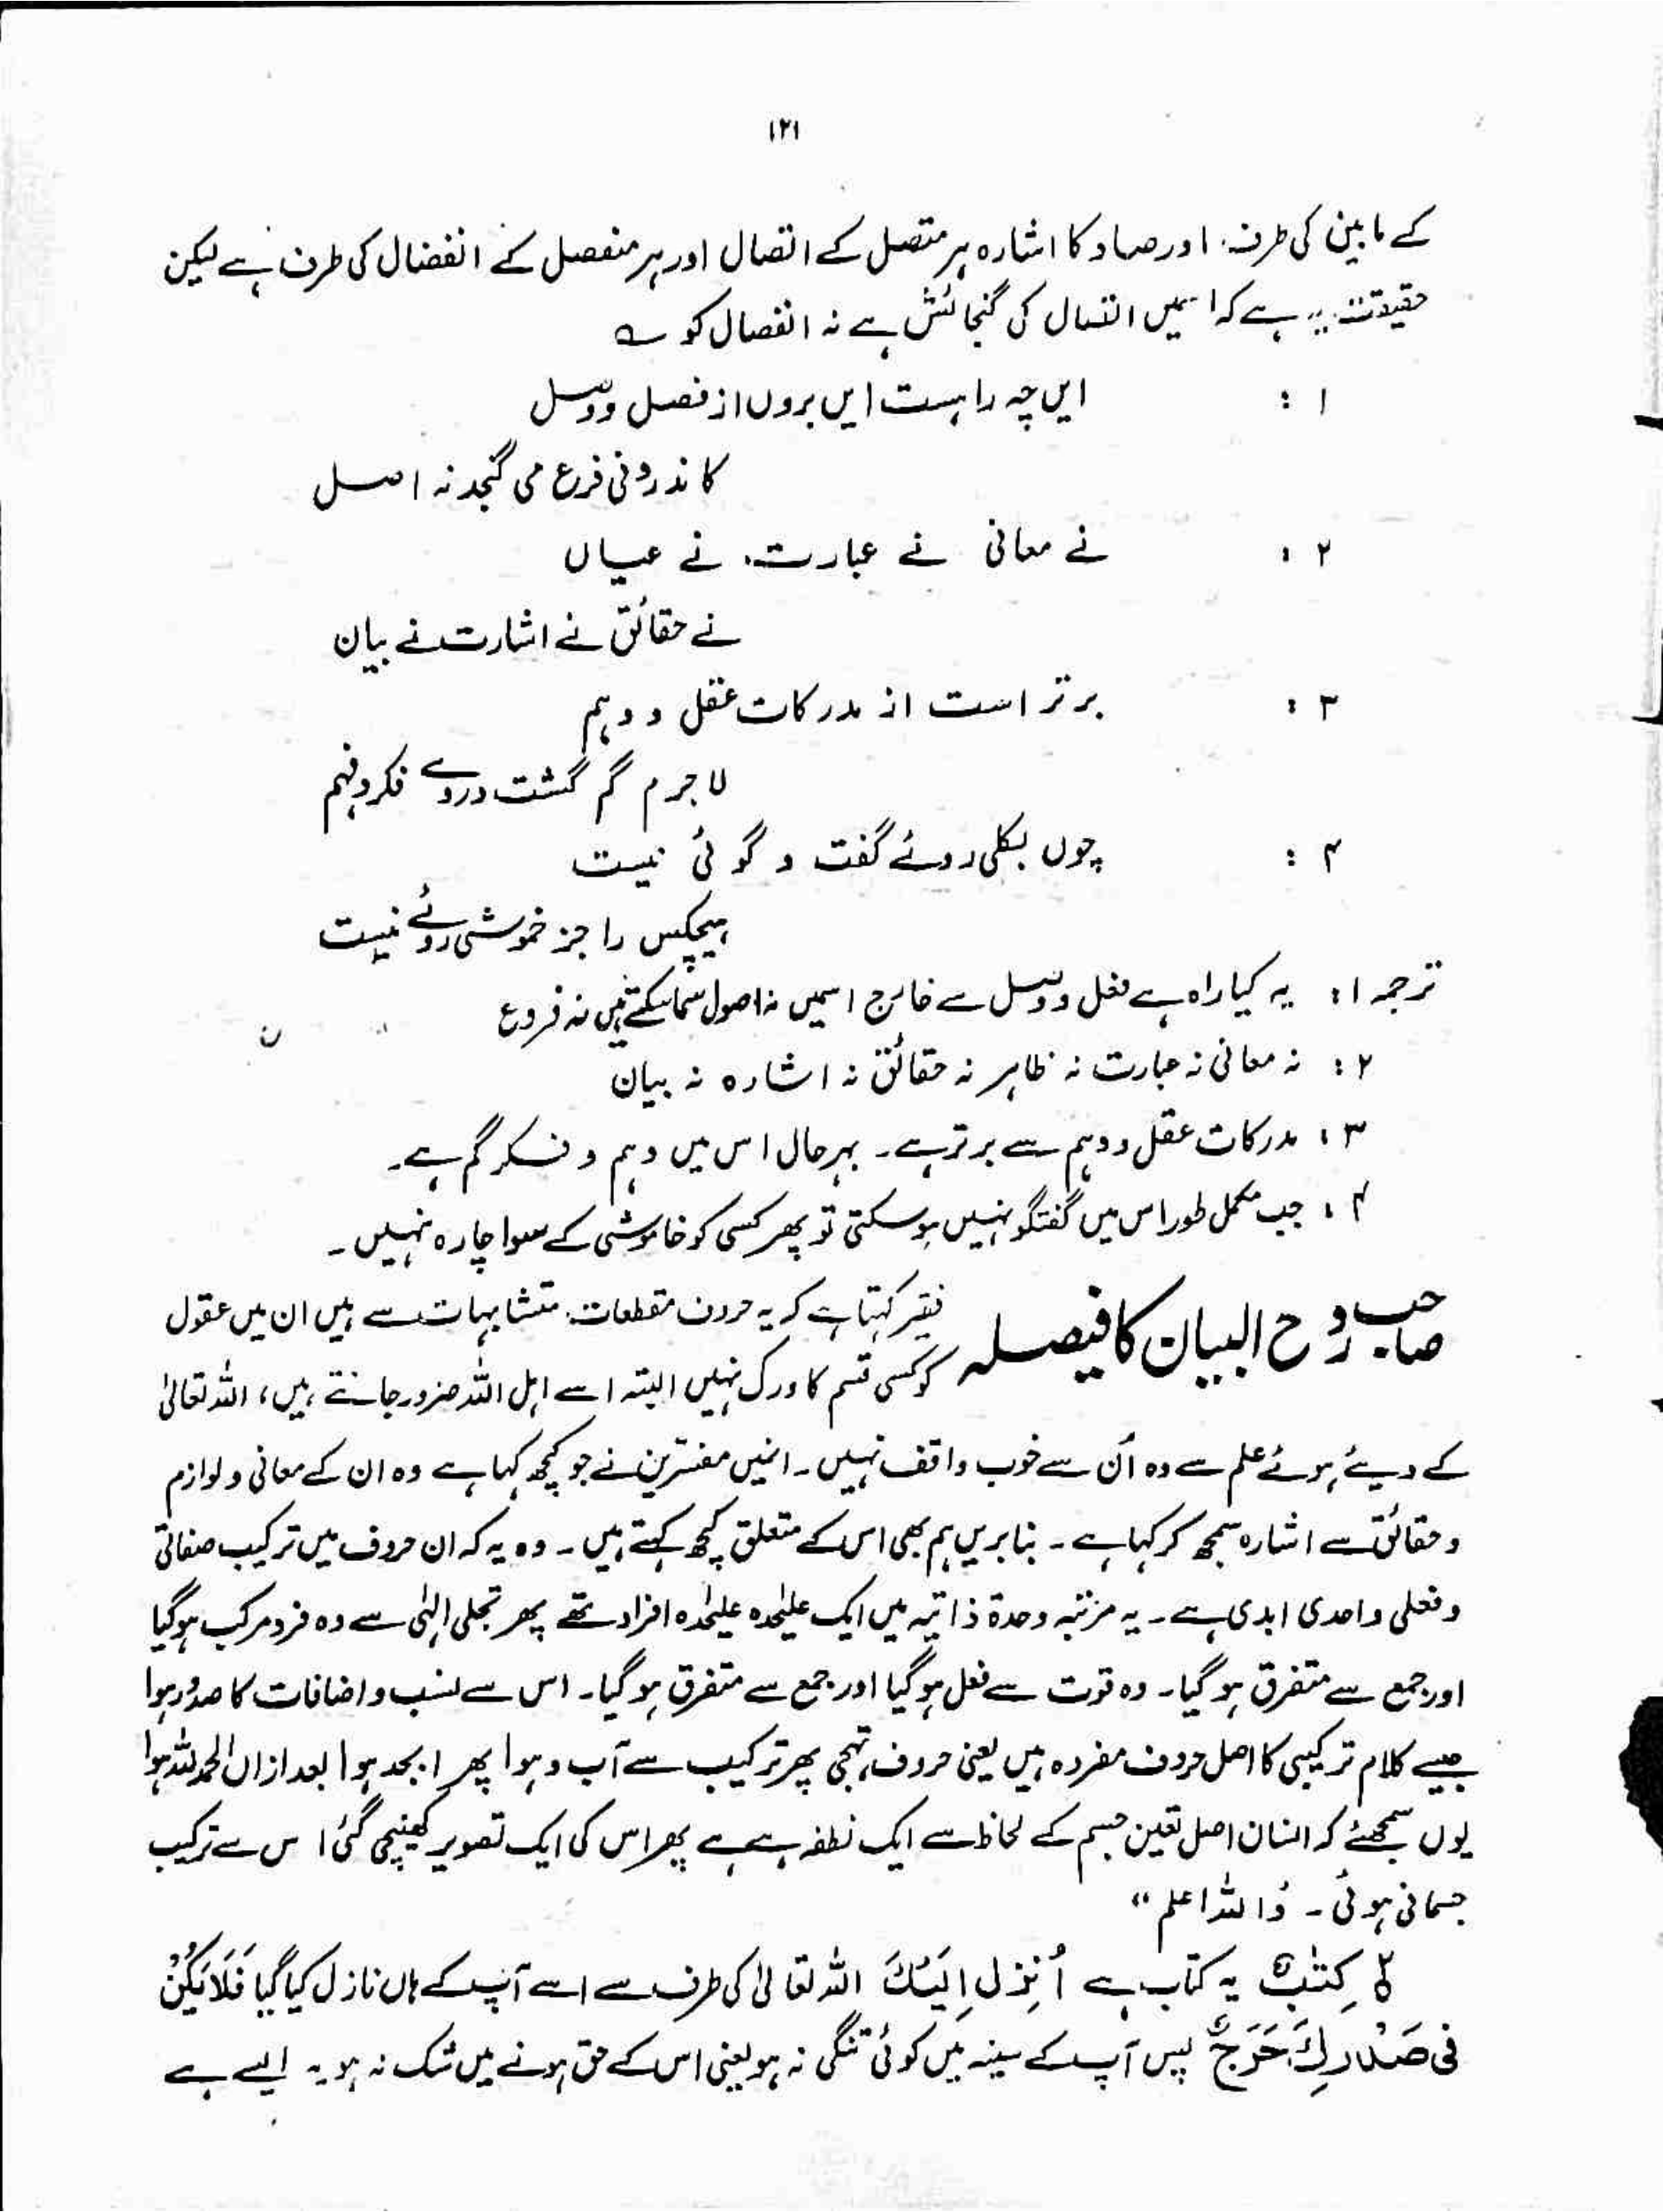 ۱۲۱
کے مابین کی طرف، اور صاد کا اشارہ ہر متصل کے اتصال اور ہر منفصل کے انفصال کی طرف ہے لیکن
حقیقت یہ ہے کہ اسمیں اتصال کی گنجائش ہے نہ انفصال کو ؎
۱ : ایں چہ راہست ایں بروں از فصل و وصل
کاندرو نی فرع می گنجد نہ اصل
۲ : نے معانی نے عبارت، نے عیاں
نے حقائق نے اشارت نے بیان
۳ : برتر است از مدرکات عقل و وہم
لاجرم گم گشت دروے فکر و فہم
۴ : چوں بکلی روئے گفت و گوئی نیست
ہیچکس را جز خموشی روئے نیست
ترجمہ ۱ : یہ کیا راہ ہے فصل و وصل سے خارج اسمیں نہ اصول سما سکتے ہیں نہ فروع
۲ : نہ معانی نہ عبارت نہ ظاہر نہ حقائق نہ اشارہ نہ بیان
۳ : مدرکات عقل و وہم سے برتر ہے۔ بہرحال اس میں وہم و فکر گم ہے۔
۴ : جب مکمل طور اس میں گفتگو نہیں ہو سکتی تو پھر کسی کو خاموشی کے سوا چارہ نہیں۔
صاحب روح البیان کا فیصلہ فقیر کہتا ہے کہ یہ حروف مقطعات، متشابہات سے ہیں ان میں عقول
کو کسی قسم کا درک نہیں البتہ اسے اہل اللہ ضرور جانتے ہیں، اللہ تعالیٰ
کے دیئے ہوئے علم سے وہ اُن سے خوب واقف نہیں۔ انہیں مفسرین نے جو کچھ کہا ہے وہ ان کے معانی و لوازم
و حقائق سے اشارہ سمجھ کر کہا ہے۔ بنا بریں ہم بھی اس کے متعلق کچھ کہتے ہیں۔ وہ یہ کہ ان حروف میں ترکیب صفاتی
و فعلی و احدی ابدی ہے۔ یہ مرتبہ وحدۃ ذاتیہ میں ایک علیٰحدہ علیٰحدہ افراد تھے پھر تجلی الہٰی سے وہ فرد مرکب ہوگیا
اور جمع سے متفرق ہو گیا۔ وہ قوت سے فعل ہو گیا اور جمع سے متفرق ہو گیا۔ اس سے نسب و اضافات کا صدور ہوا
جیسے کلام ترکیبی کا اصل حروف مفردہ ہیں یعنی حروف تہجی پھر ترکیب سے آب و ہوا پھر ابجد ہوا بعد ازاں الحمدللہ ہوا
یوں سمجھئے کہ انسان اصل تعین جسم کے لحاظ سے ایک نطفہ ہے پھر اس کی ایک تصویر کھینچی گئی اس سے ترکیب
جسمانی ہوئی۔ وَاللہ اعلم "
کِتٰبٌ یہ کتاب ہے اُنْزِلَ اِلَیْکَ اللہ تعالیٰ کی طرف سے اسے آپ کے ہاں نازل کیا گیا فَلَا یَکُنْ
فِی صَدْرِکَ حَرَجٌ پس آپ کے سینہ میں کوئی تنگی نہ ہو یعنی اس کے حق ہونے میں شک نہ ہو یہ ایسے ہے